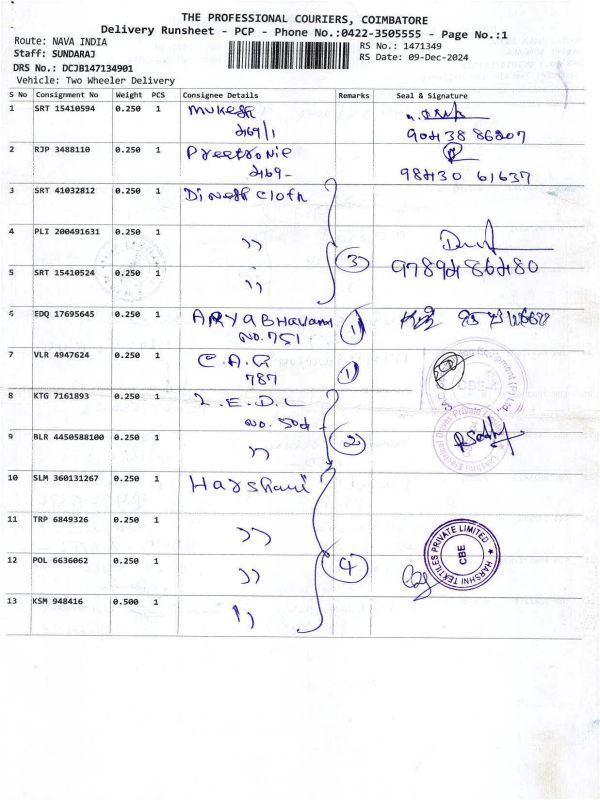 THE PROFESSIONAL COURIERS, COIMBATORE
Delivery Runsheet - PCP - Phone No.:0422-3505555 - Page No.:1
Route: NAVA INDIA
RS No.: 1471349
Staff: SUNDARAJ
RS Date: 09-Dec-2024
DRS No.: DCJB147134901
Vehicle: Two Wheeler Delivery
S No Consignment No Weight PCS Consignee Details Remarks Seal & Signature
1 SRT 15410594 0.250 1 Mukesh
2 RJP 3488110 0.250 1
98430 61637
3 SRT 41032812 0.250 1 Dinesh cloth
4 PLI 200491631 0.250 1 ,,
3
9789486480
5 SRT 15410524 0.250 1 ,,
6 EDQ 17695645 0.250 1 ARYABHavan
No. 751 1
7 VLR 4947624 0.250 1 C.A.G
787 1
8 KTG 7161893 0.250 1 L.E.D.L
No. 504
9 BLR 4450588100 0.250 1 ,, 2
10 SLM 360131267 0.250 1 Harshani
11 TRP 6849326 0.250 1 ,,
12 POL 6636062 0.250 1 ,, 4
HARSHNI TEXTILES PRIVATE LIMITED
CBE
13 KSM 948416 0.500 1 ,,